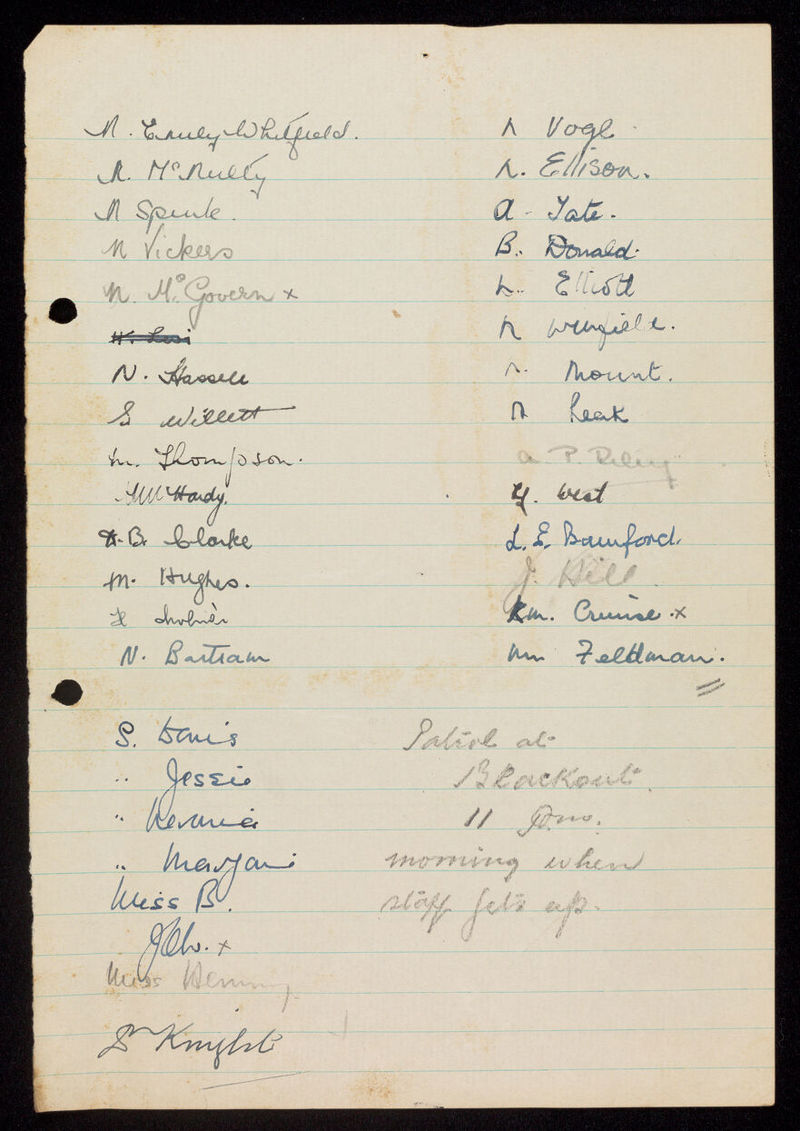 N. Emily Whitfield.
N. McNulty
N Spink.
N Vickers
N. McGovern x
N. Hassell
S Willett
M. Thompson.
Hardy.
B. Clarke
M. Hughes.
N. Bartram
N Vogl
N. Ellison.
A. Tate.
B. Donald.
N. Elliott
N Wingfield.
N. Mount.
N Leak
a P.
Y. West
L. E. Bamford.
J. Hill
Km. Cruise x
Feldman.
S. Denis
" Jessie
"
"
Miss B.
x
Miss
Dr Knight
Patrol at
Blackout.
11 P.m.
morning when
staff gets up.